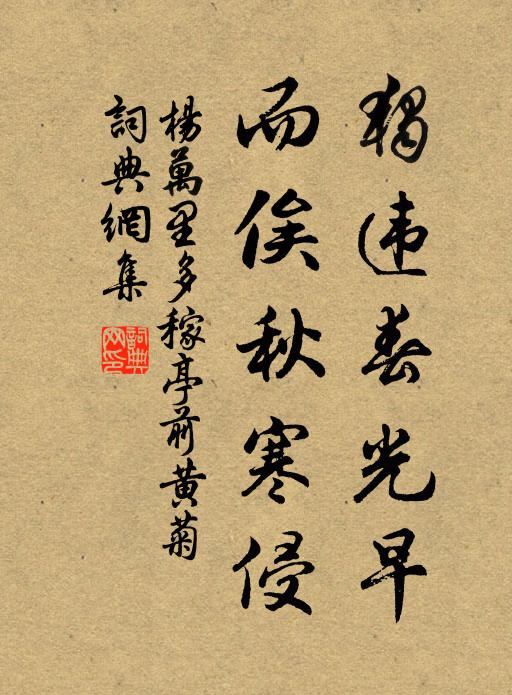 独违春光早
而俟秋寒侵
楊萬里多稼亭前黄菊
詞典網集
詞典网印